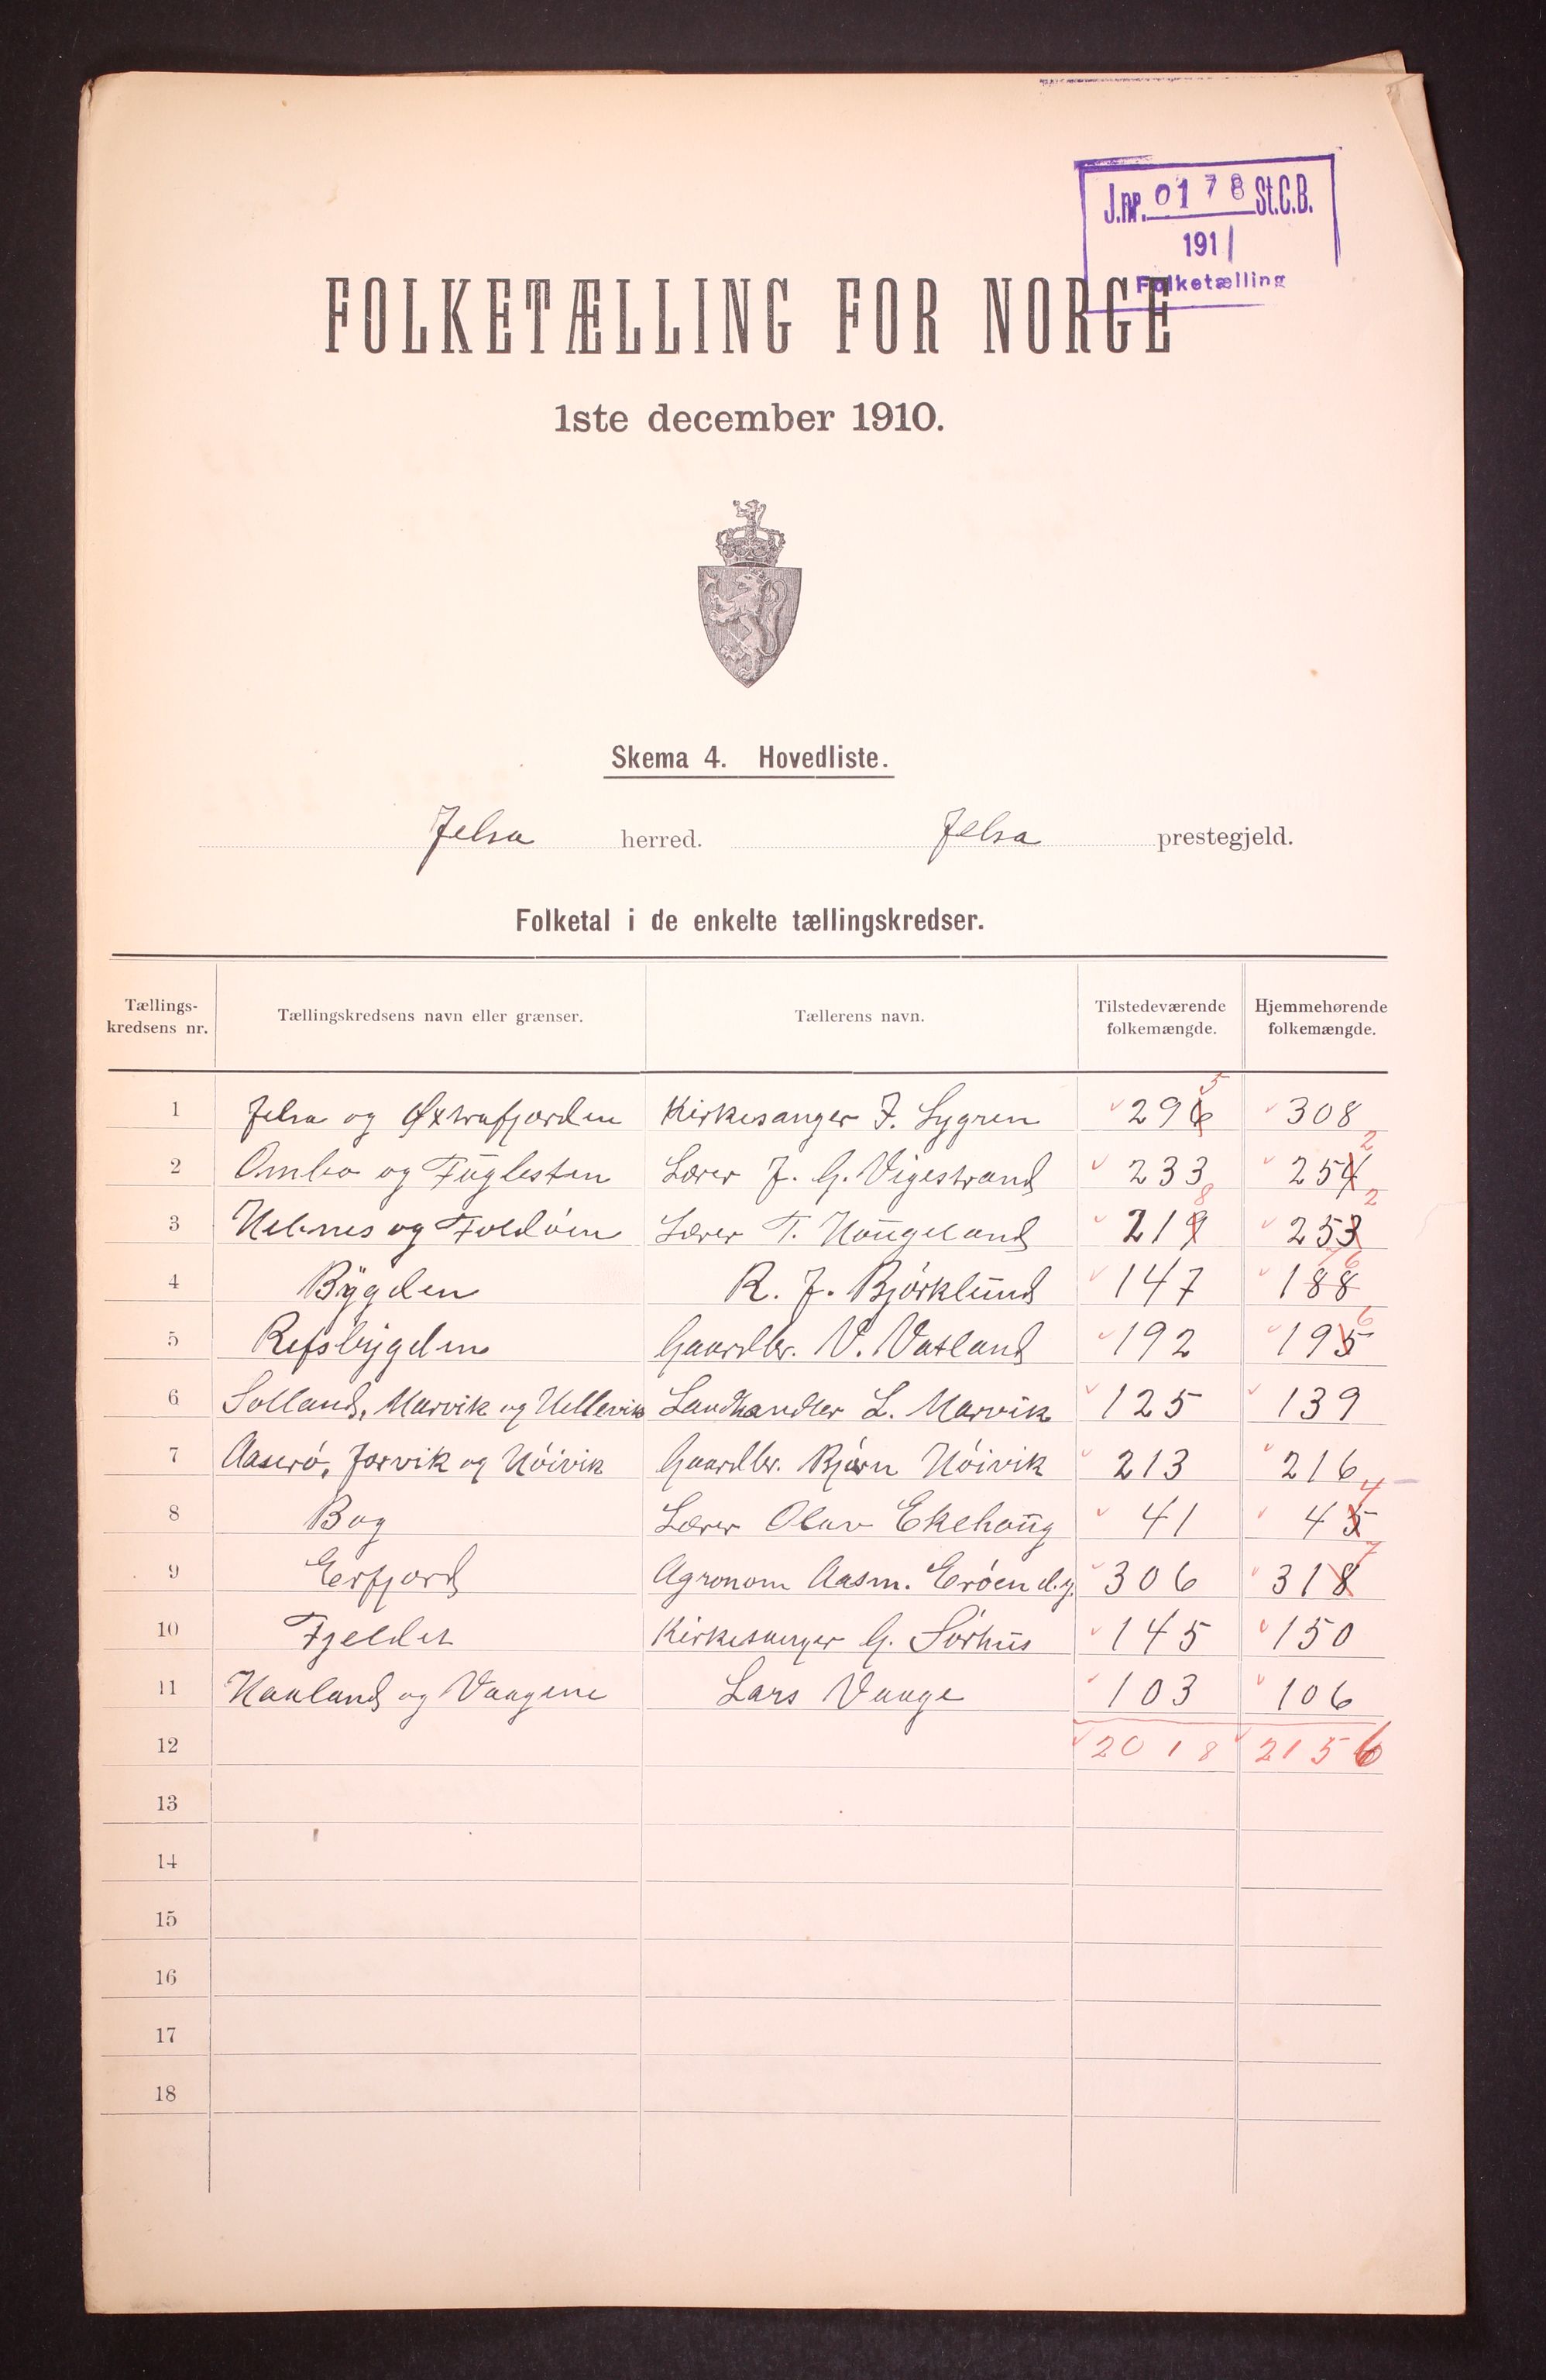 J.nr. 0178 St.C.B.
1911
Folketælling
FOLKETÆLLING FOR NORGE
1ste december 1910.
Skema 4. Hovedliste.
Jelsa herred. Jelsa prestegjeld.
Folketal i de enkelte tællingskredser.
Tællings-kredsens nr. Tællingskredsens navn eller grænser. Tællerens navn. Tilstedeværende folkemængde. Hjemmehørende folkemængde.
1 Jelsa og Øxtrafjorden Kirkesanger J. Lygren 296 5 308
2 Ombo og Fuglesten Lærer J. G. Vigestrand 233 254 2
3 Hebnes og Foldöen Lærer T. Haugeland 219 8 253 2
4 Bygden R. J. Björklund 147 188 76
5 Refsbygden Gaardbr. V. Vatland 192 195 6
6 Solland, Marvik og Hellevik Landhandler L. Marvik 125 139
7 Aaserö, Jorvik og Höivik Gaardbr. Bjørn Höivik 213 216
8 Bog Lærer Olav Ekehaug 41 45 4
9 Erfjord Agronom Aasm. Eröen d.y. 306 318 7
10 Fjeldet Kirkesanger G. Sörhus 145 150
11 Haaland og Vaagene Lars Vaage 103 106
12 2018 2156
13
14
15
16
17
18